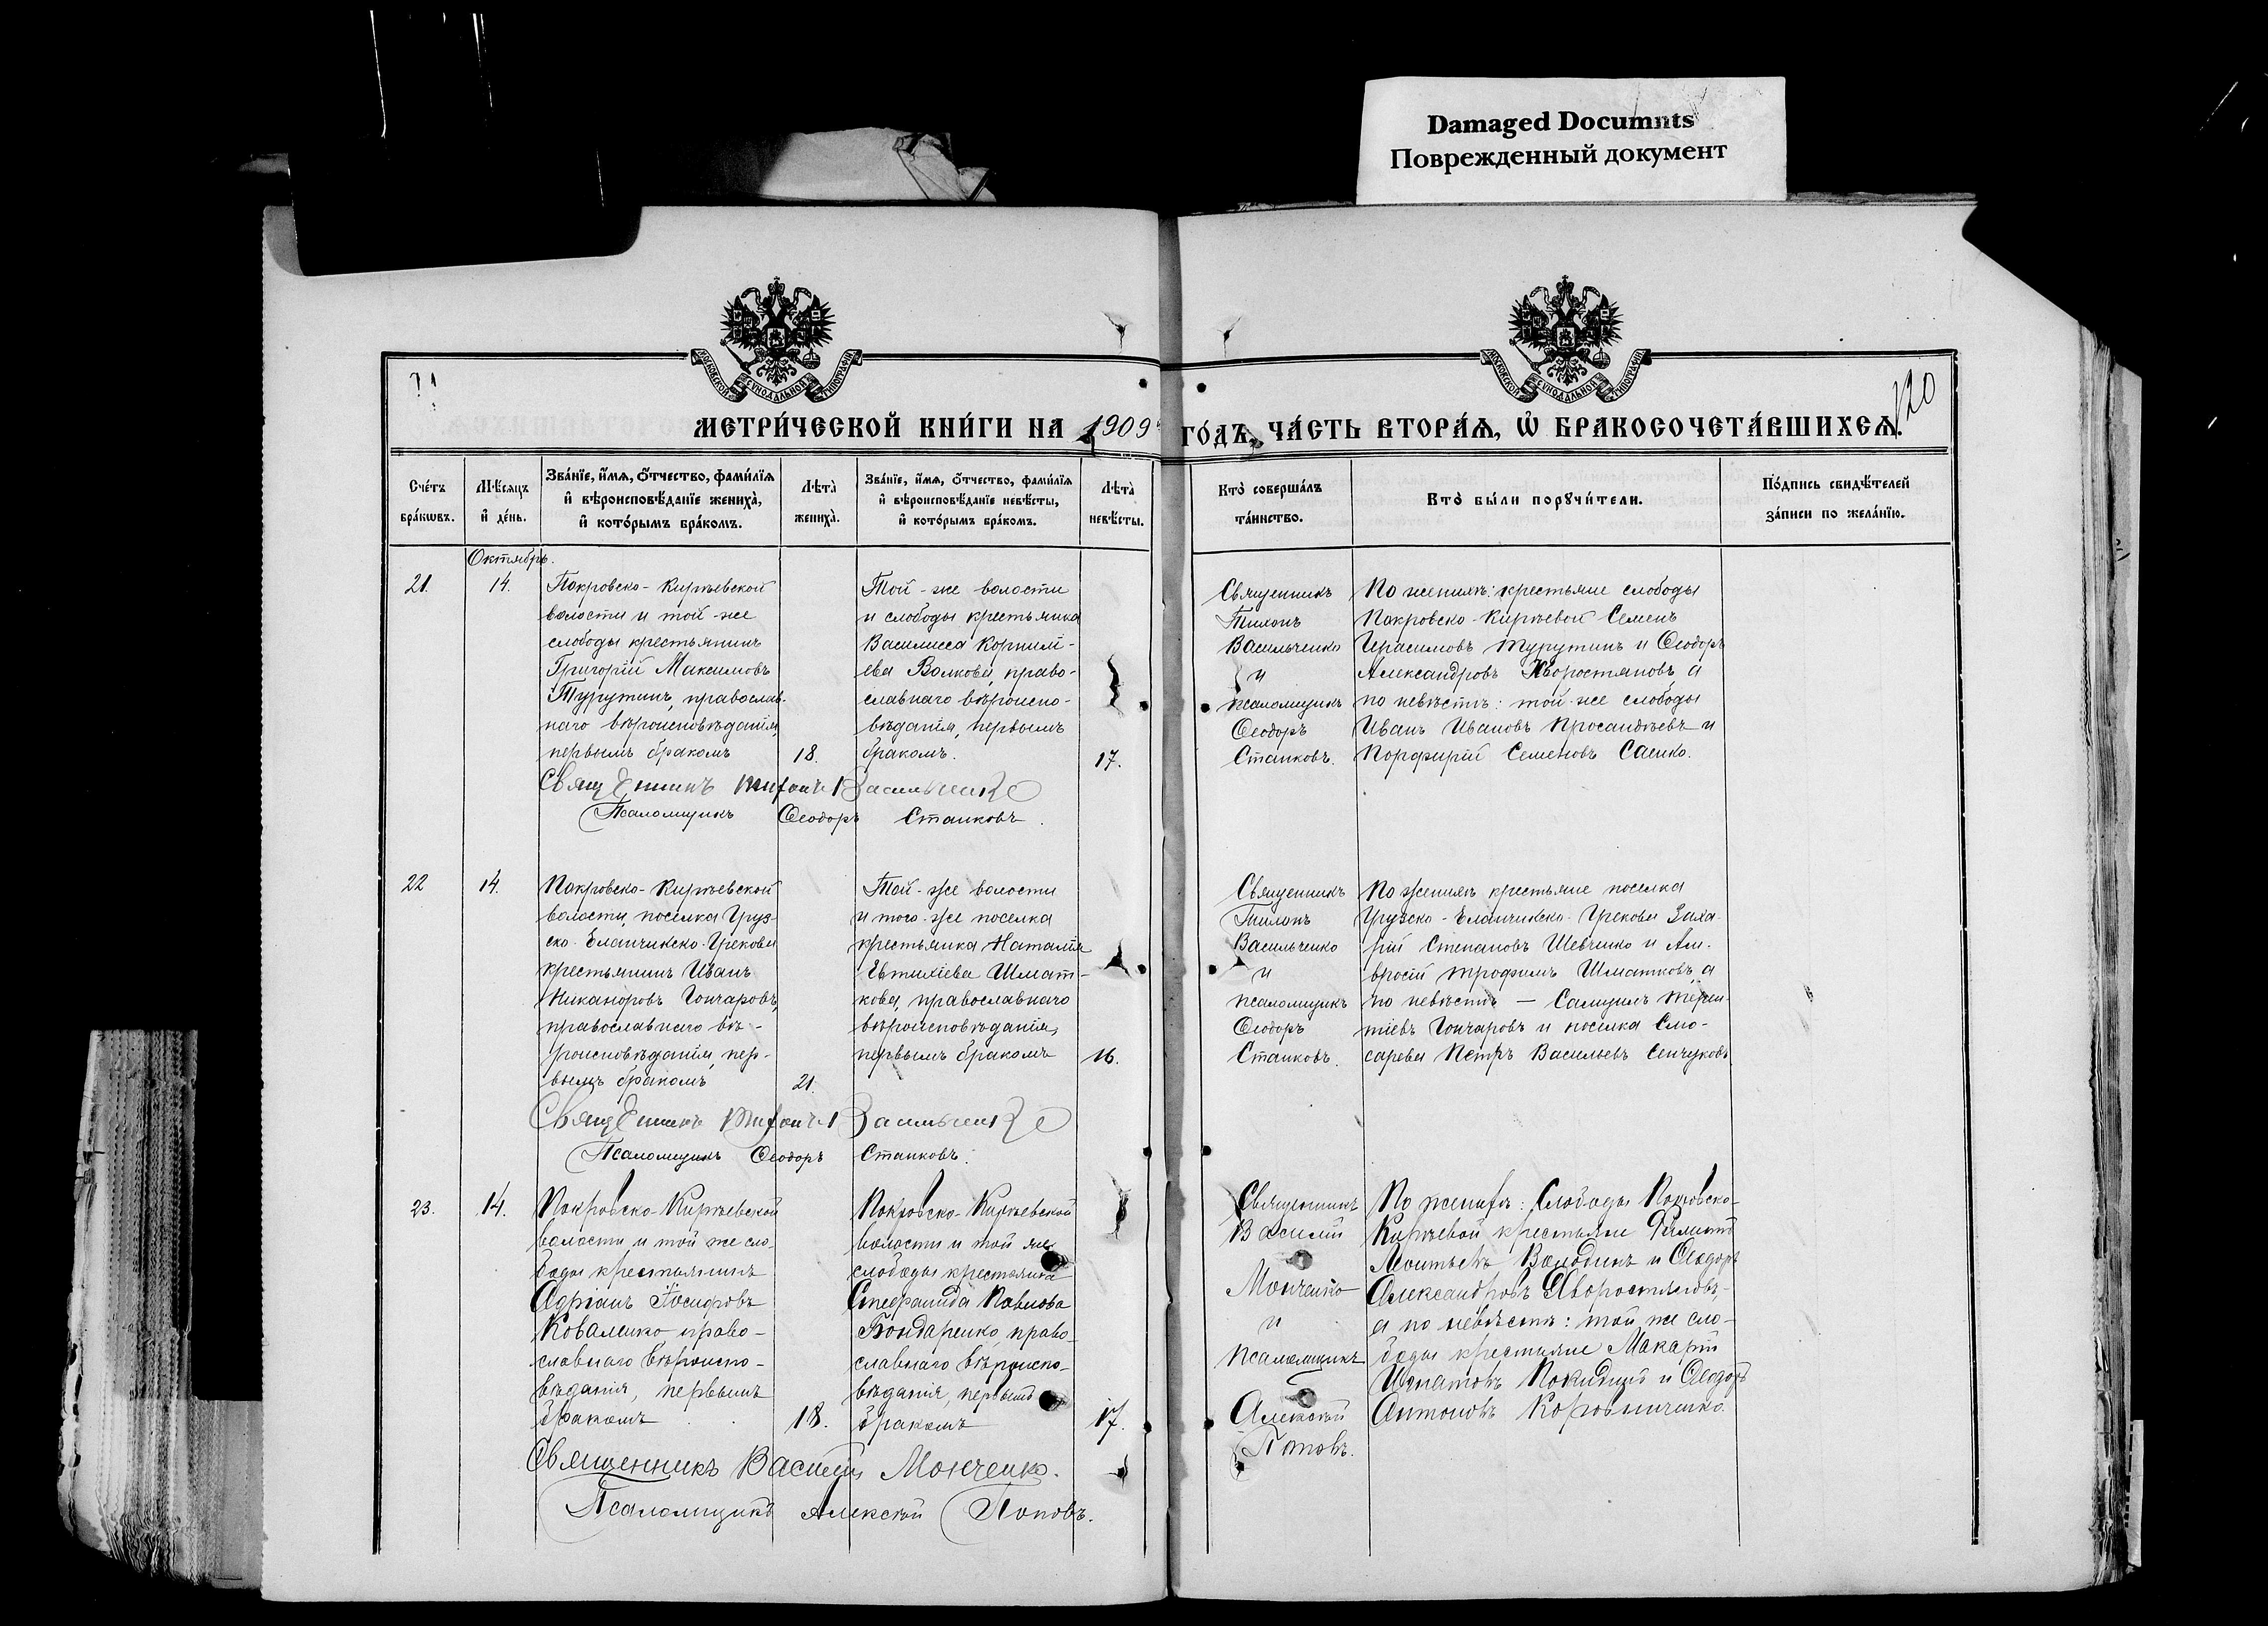 Damaged Documnts
Поврежденный документ
МОСКОВСКОЙ СѴНОДАЛЬНОЙ ТИПОГРАФІИ
МОСКОВСКОЙ СѴНОДАЛЬНОЙ ТИПОГРАФІИ
120
МЕТРИ́ЧЕСКОЙ КНИ́ГИ НА 1909 ГО́ДЪ, ЧА́СТЬ ВТОРА́Ѧ, Ѡ БРАКОСОЧЕТА́ВШИХСѦ.
Сче́тъ бра́кѡвъ.
Мѣ́сѧцъ и де́нь.
Зва́нїе, и́мѧ, ѻ́тчество, фами́лїѧ и вѣроисповѣ́данїе жениха̀, и кото́рымъ бра́комъ.
Лѣта̀ жениха̀.
Зва́нїе, и́мѧ, ѻ́тчество, фами́лїѧ и вѣроисповѣ́данїе невѣ́сты, и кото́рымъ бра́комъ.
Лѣта̀ невѣ́сты.
Кто̀ соверша́лъ та́инство.
Кто̀ бы́ли порꙋчи́тели.
По́дпись свидѣ́телей за́писи по жела́нїю.
Октябрь.
21.
14.
Покровско-Кирѣевской
волости и той-же
слободы крестьянинъ
Григорій Максимовъ
Турутинъ, православ-
наго вѣроисповѣданія,
первымъ бракомъ
18.
Той-же волости
и слободы крестьянка
Василисса Корнилі-
ева Волкова, право-
славнаго вѣроиспо-
вѣданія, первымъ
бракомъ.
17.
Священникъ
Тихонъ
Васильченко
и
псаломщикъ
Ѳеодоръ
Станковъ.
По женихѣ: крестьяне слободы
Покровско-Кирѣевой Семенъ
Герасимовъ Турутинъ и Ѳеодоръ
Александровъ Хворостяновъ, а
по невѣстѣ: той же слободы
Иванъ Ивановъ Просандѣевъ и
Порфирій Семеновъ Саенко.
Священникъ Тихонъ Васильченко
Псаломщикъ Ѳеодоръ Станковъ.
22
14.
Покровско-Кирѣевской
волости, поселка Груз-
ско-Еланчикско-Грекова
крестьянинъ Иванъ
Никаноровъ Гончаровъ,
православнаго вѣ-
роисповѣданія, пер-
вымъ бракомъ
21.
Той-же волости
и того-же поселка
крестьянка Наталія
Евтихіева Шмат-
кова, православнаго
вѣроисповѣданія,
первымъ бракомъ
16.
Священникъ
Тихонъ
Васильченко
и
псаломщикъ
Ѳеодоръ
Станковъ.
По женихѣ крестьяне поселка
Грузско-Еланчикско-Грекова Заха-
рій Степановъ Шевченко и Ам-
вросій Трофимъ Шматковъ, а
по невѣстѣ — Самуилъ Терен-
тіевъ Гончаровъ и поселка Слю-
сарева Петръ Васильевъ Сенчуковъ
Священникъ Тихонъ Васильченко
Псаломщикъ Ѳеодоръ Станковъ.
23.
14.
Покровско-Кирѣевской
волости и той же сло-
боды крестьянинъ
Адріанъ Іосифовъ
Коваленко право-
славнаго вѣроиспо-
вѣданія, первымъ
бракомъ
18.
Покровско-Кирѣевской
волости и той же
слободы крестьянка
Стефанида Павлова
Бондаренко, право-
славнаго вѣроиспо-
вѣданія, первымъ
бракомъ
17.
Священникъ
Василій
Монченко
и
псаломщикъ
Алексѣй
Поповъ.
По женихѣ: Слободы Покровско-
Кирѣевой крестьяне Филиппъ
Леонтьевъ Володинъ и Ѳеодоръ
Александровъ Хворостяновъ,
а по невѣстѣ: той же сло-
боды крестьяне Макарій
Игнатовъ и Ѳеодоръ
Антоновъ
Священникъ Василій Монченко.
Псаломщикъ Алексѣй Поповъ.